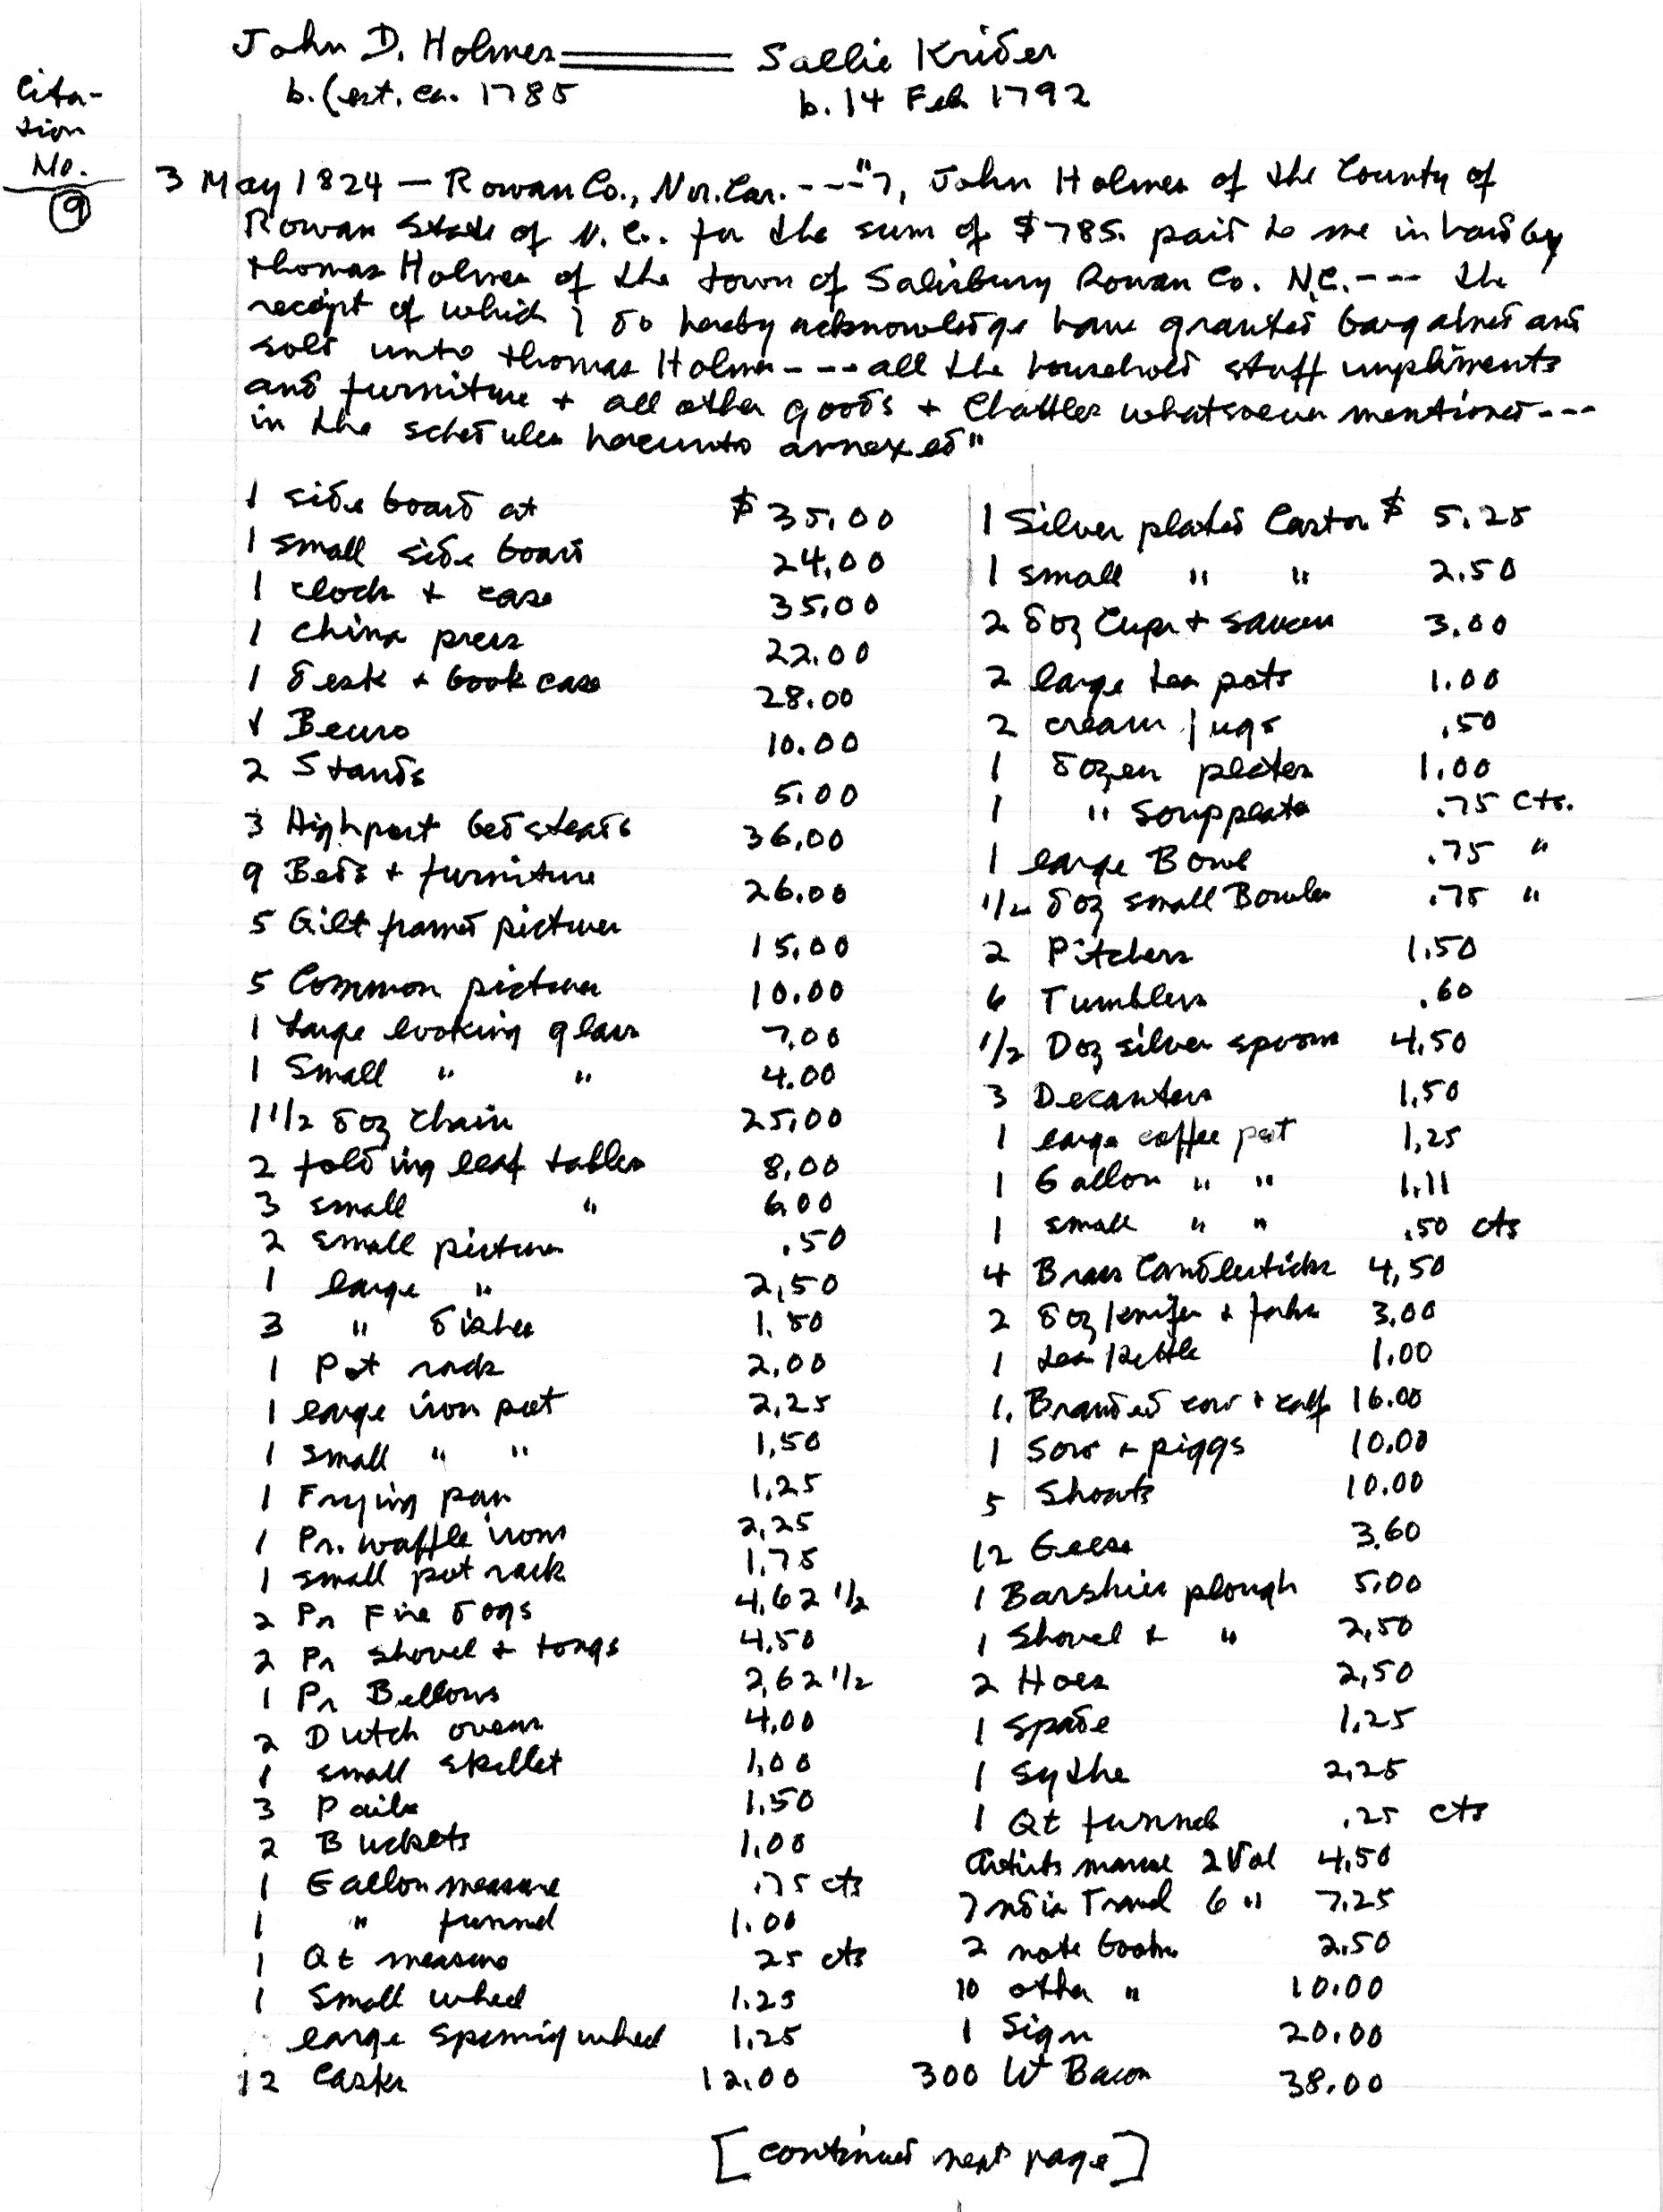 John D. Holmes ═══ Sallie Krider
b. (est. ca. 1785
b. 14 Feb 1792
Cita-
tion
No.
9
3 May 1824 — Rowan Co., Nor. Car. ---- "I, John Holmes of the County of
Rowan State of N.C. for the sum of $785. paid to me in hand by
Thomas Holmes of the town of Salisbury Rowan Co. N.C. --- the
receipt of which I do hereby acknowledge have granted bargained and
sold unto Thomas Holmes --- all the household stuff impliments
and furniture + all other goods + Chattles whatsoever mentioned ---
in the schedules hereunto annexed"
1 side board at $35.00
1 small side board 24.00
1 clock + case 35.00
1 china press 22.00
1 desk + book case 28.00
1 Beuro 10.00
2 Stands 5.00
3 High post bedsteads 36.00
9 Beds + furniture 26.00
5 Gilt framed pictures 15.00
5 Common pictures 10.00
1 Large looking glass 7.00
1 Small " " 4.00
1 1/2 doz chairs 25.00
2 folding leaf tables 8.00
3 small " 6.00
2 small pictures .50
1 large " 2.50
3 " dishes 1.50
1 Pot rack 2.00
1 large iron pot 2.25
1 small " " 1.50
1 Frying pan 1.25
1 Pr. waffle irons 2.25
1 small pot rack 1.75
2 Pr Fire dogs 4.62 1/2
2 Pr shovel + tongs 4.50
1 Pr Bellows 2.62 1/2
2 Dutch ovens 4.00
1 small skillet 1.00
3 Pails 1.50
2 Buckets 1.00
1 Gallon measure .75 cts
1 " funnel 1.00
1 Qt measure 25 cts
1 Small wheel 1.25
large spinnig wheel 1.25
12 Casks 12.00
1 Silver plated Castor $ 5.25
1 small " " 2.50
2 doz Cups + saucers 3.00
2 large tea pots 1.00
2 cream jugs .50
1 dozen plates 1.00
1 " Soup plates .75 cts.
1 large Bowl .75 "
1/2 doz small Bowles .75 "
2 Pitchers 1.50
6 Tumblers .60
1/2 Doz silver spoons 4.50
3 Decanters 1.50
1 large coffee pot 1.25
1 Gallon " " 1.11
1 small " " .50 cts
4 Brass Candlesticks 4.50
2 doz knifes + forks 3.00
1 tea kettle 1.00
1. Branded cow + calf 16.00
1 Sow + piggs 10.00
5 Shoats 10.00
12 Geese 3.60
1 Barshier plough 5.00
1 Shovel + " 2.50
2 Hoes 2.50
1 Spade 1.25
1 Sythe 2.25
1 Qt funnel .25 cts
Artists 2 Vol 4.50
India 6 " 7.25
2 note books 2.50
10 other " 10.00
1 Sign 20.00
300 Wt Bacon 38.00
[continued next page]